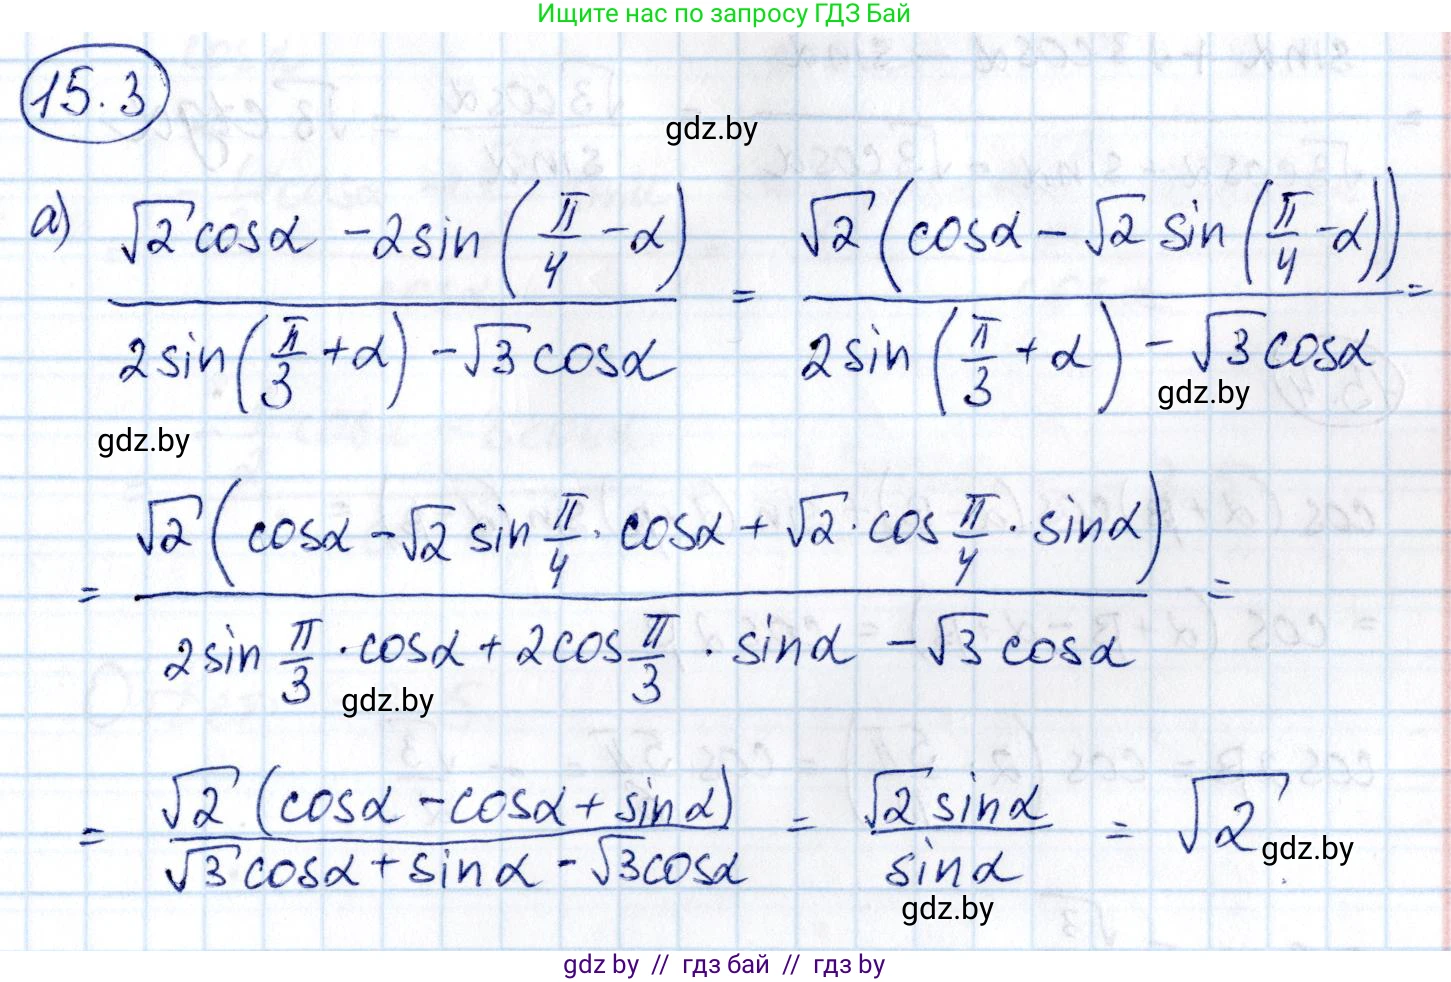 Ищите нас по запросу ГДЗ Бай
15.3
gdz.by
а) (√2 cosα - 2 sin(π/4 - α)) / (2 sin(π/3 + α) - √3 cosα) = (√2 (cosα - √2 sin(π/4 - α))) / (2 sin(π/3 + α) - √3 cosα) =
gdz.by
gdz.by
= (√2 (cosα - √2 sin π/4 · cosα + √2 · cos π/4 · sinα)) / (2 sin π/3 · cosα + 2 cos π/3 · sinα - √3 cosα) =
gdz.by
= (√2 (cosα - cosα + sinα)) / (√3 cosα + sinα - √3 cosα) = (√2 sinα) / (sinα) = √2
gdz.by
gdz.by
gdz by // гдз бай // гдз by